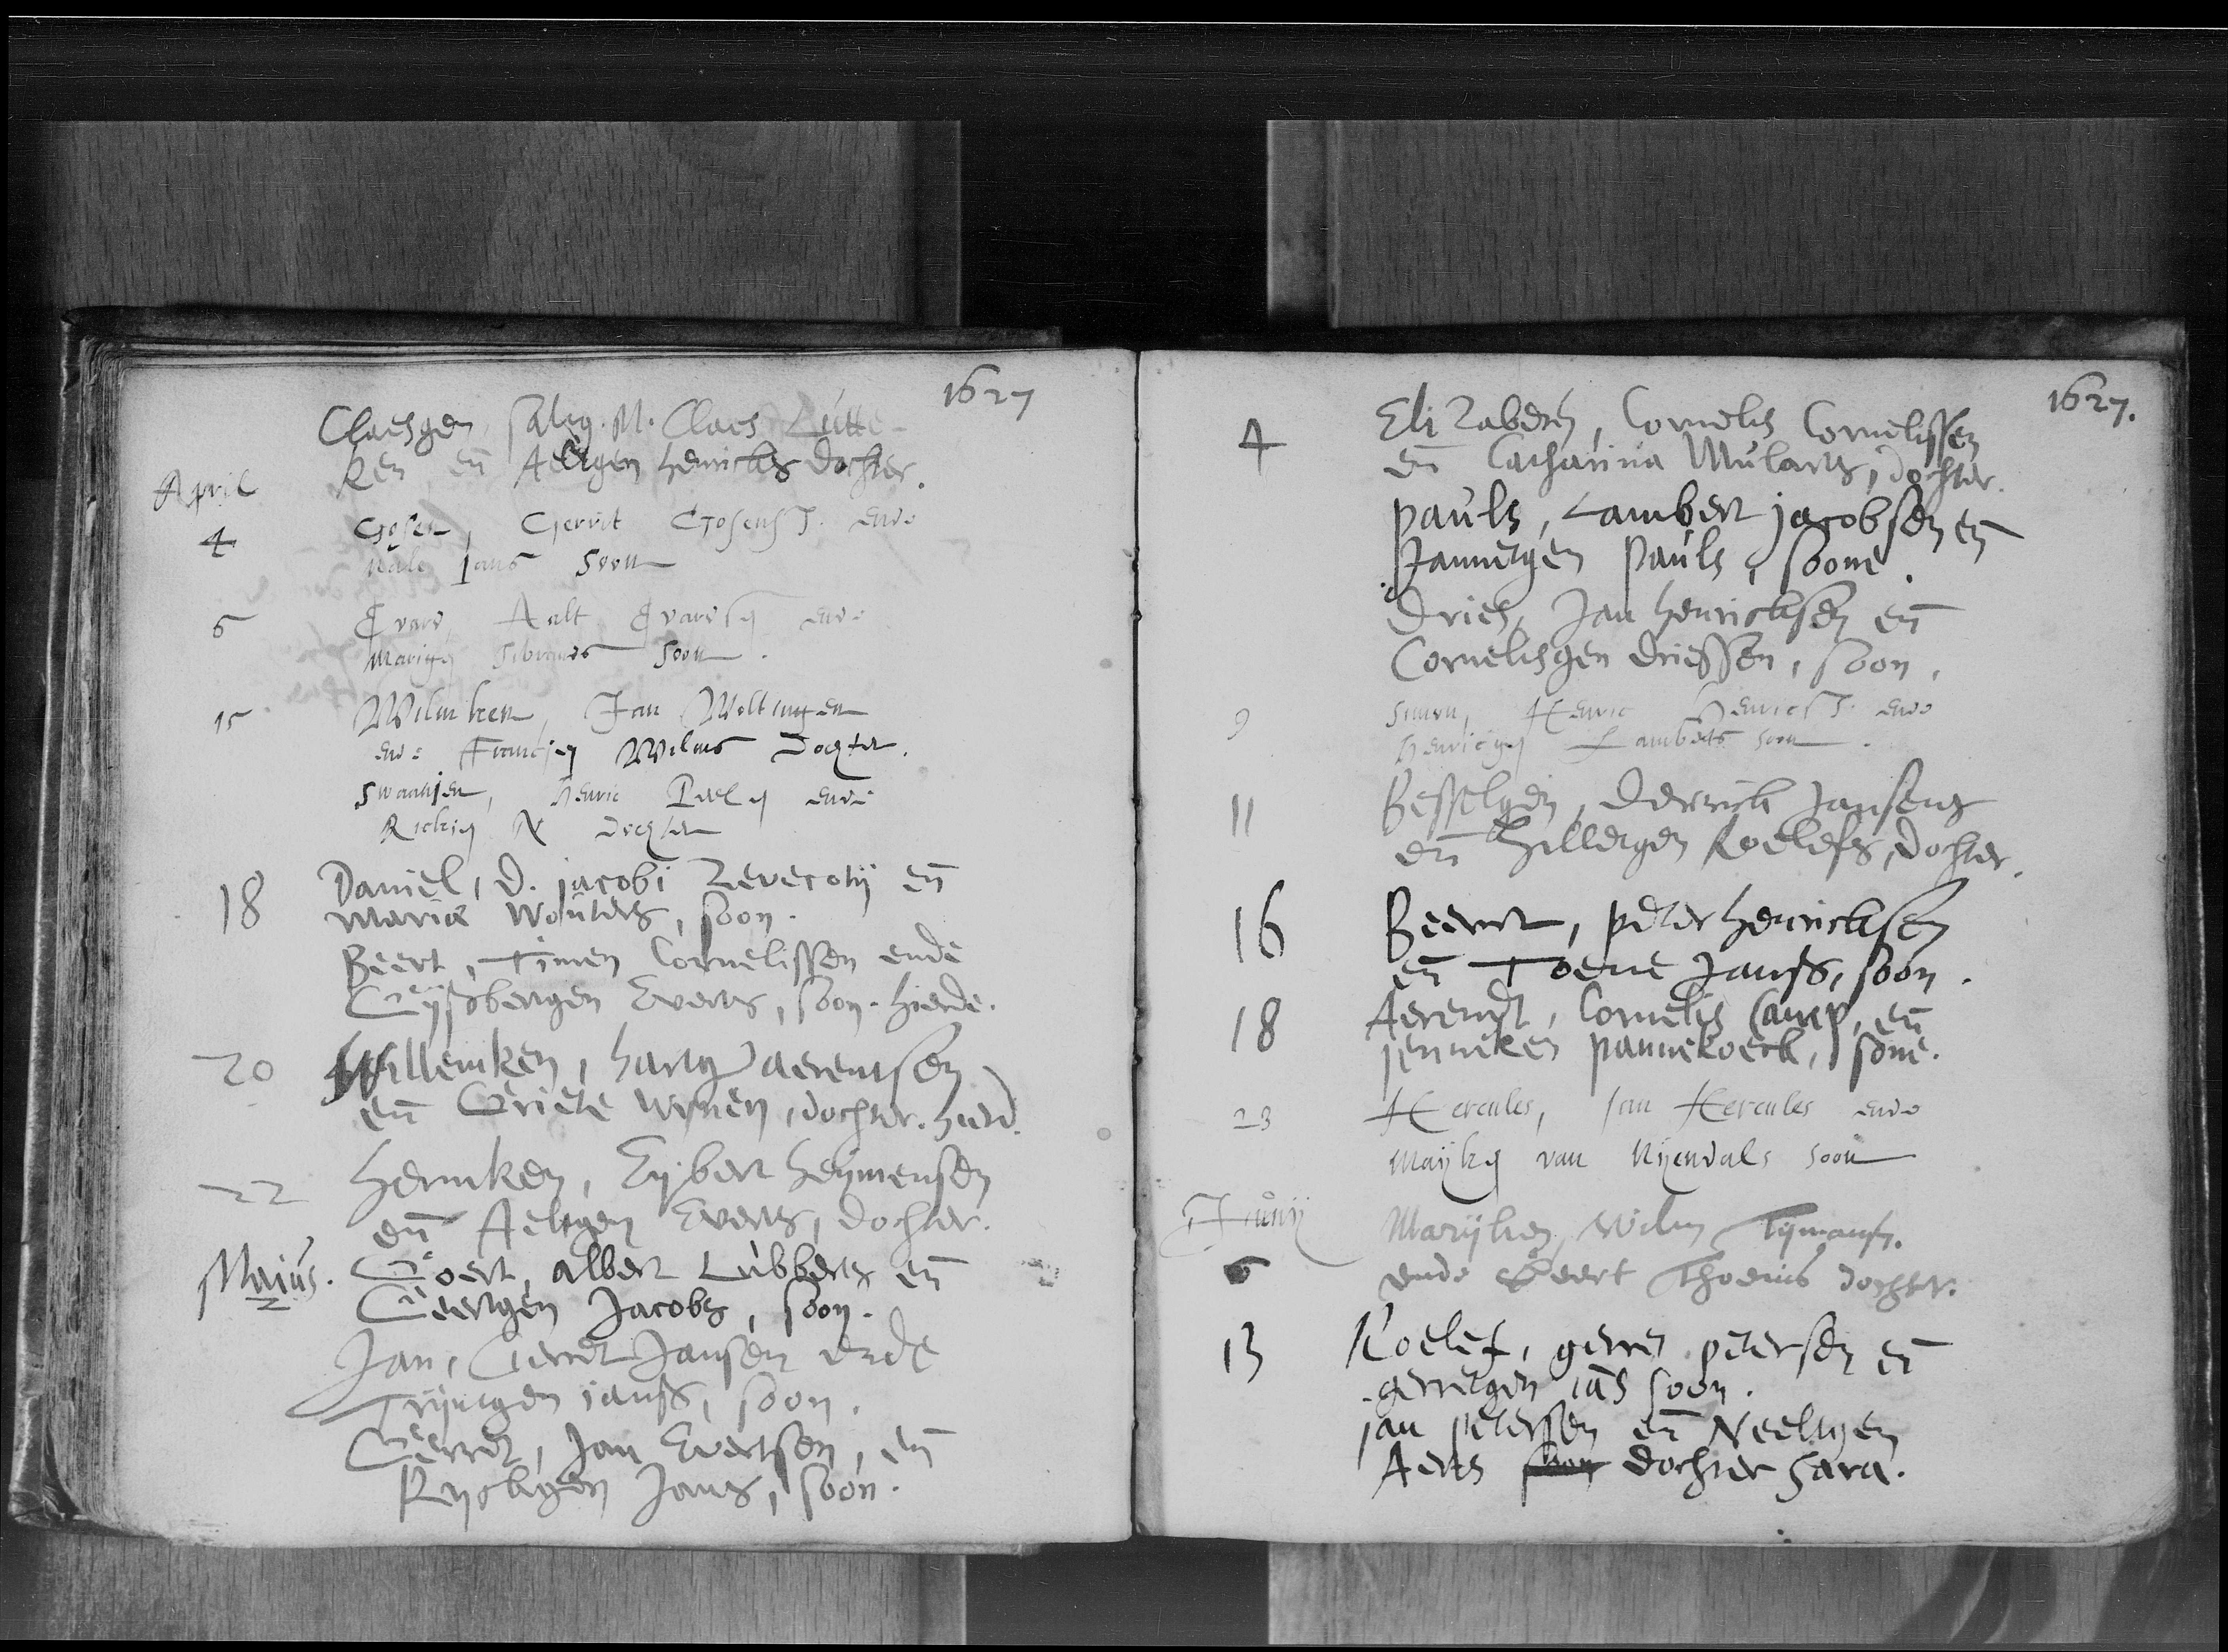 1627
Claesgen, salig. M. Claes Lutte-
ken en Aeltgen henricks dochter.
April
4 Gosen, Gerrit Gosens J. ende
Jans Soon
6 Evard, Aalt Evards ende
Soon.
15 Wilmken, Jan Woltingen
ende Wilms Dochter.
Swaantjen, Henric ende
N Dochter
18 Daniel, D. jacobi Revecotij en
Mariæ Wouters, soon.
Beert, Timen Cornelissen ende
Gijsbertgen Everts, soon. hierde.
20 Willemken, harty aerentsen
en Griete Wynen, dochter. hierd.
22 Hermken, Eijbert heijmensen
en Aeltgen Everts, dochter.
Maius.
2 Goert, albert Lubberts en
Geertgen Jacobs, soon.
Jan, Gerret Jansen ende
Trijntgen janss, soon.
Gerret, Jan Evertsen, en
Ryckgen Jans, soon.
1627.
4 Elizabeth, Cornelis Cornelissen
en Catharina Mularts, dochter.
pauls, Lambert jacobsen en
Jannetgen pauls, soone.
Dries, Jan henricksen en
Cornelisgen driessen, soon.
9 Simon, Henric Henrics J. ende
Lamberts soon.
11 Besselgen, Derrick Jansens
en Hillergen Roelefs, dochter.
16 Beernt, peter henricksen
en Toene Janss, soon.
18 Aerendt, Cornelis Camp, en
jenneken pannekoeck, sone.
23 Hercules, Jan Hercules ende
Mayken van Nijendals soon
Junij
6 Marijken, Wilm Tijmans.
ende Geert Thoenis dochter.
13 Roelef, gerret petersen en
gerretgen jas soon.
jan petersen en Neeltgen
Aerts soon dochter Sara.